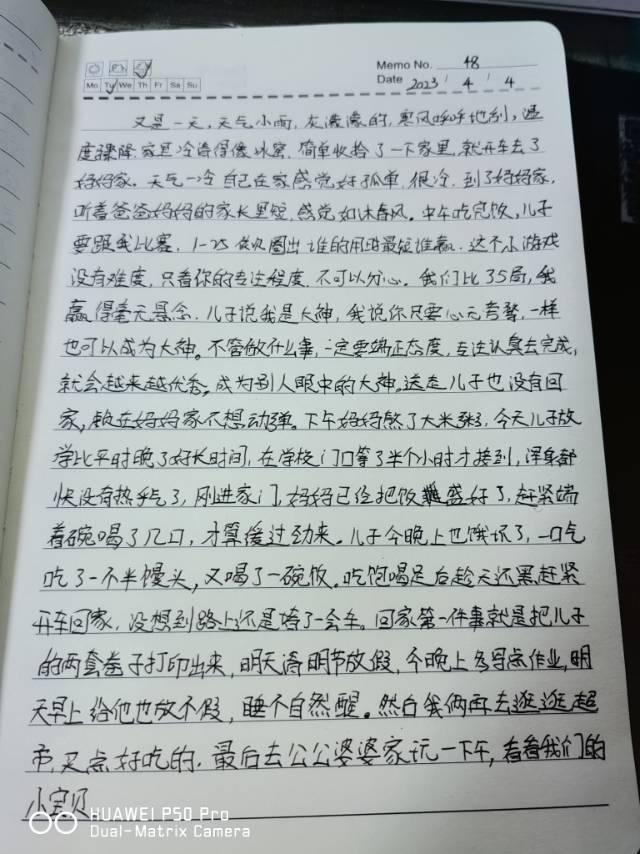 Memo No. 48
Mo Tu We Th Fr Sa Su
Date 2023 / 4 / 4
又是一天,天气小雨,灰濛濛的,寒风呼呼地刮,温
度骤降.家里冷清得像冰窖,简单收拾了一下家里,就开车去了
妈妈家。天气一冷自己在家感觉好孤单,很冷.到了妈妈家,
听着爸爸妈妈的家长里短,感觉如沐春风。中午吃完饭,儿子
要跟我比赛,1-25 依次圈出谁的用时最短谁赢.这个小游戏
没有难度,只看你的专注程度,不可以分心。我们比35局,我
赢得毫无悬念.儿子说我是大神,我说你只要心无旁骛,一样
也可以成为大神。不管做什么事,一定要端正态度,专注认真去完成,
就会越来越优秀,成为别人眼中的大神。送走儿子也没有回
家,赖在妈妈家不想动弹。下午妈妈熬了大米粥,今天儿子放
学比平时晚了好长时间,在学校门口等了半个小时才接到,浑身都
快没有热乎气了,刚进家门,妈妈已经把饭盛好了,赶紧端
着碗喝了几口,才算缓过劲来。儿子今晚上也饿坏了,一口气
吃了一个半馒头,又喝了一碗饭。吃饱喝足后趁天还黑赶紧
开车回家,没想到路上还是堵了一会车。回家第一件事就是把儿子
的两套卷子打印出来,明天清明节放假,今晚上多写点作业,明
天早上给他也放个假,睡个自然醒。然后我俩再去逛逛超
市,买点好吃的.最后去公公婆婆家玩一下午,看看我们的
小宝贝
HUAWEI P50 Pro
Dual-Matrix Camera